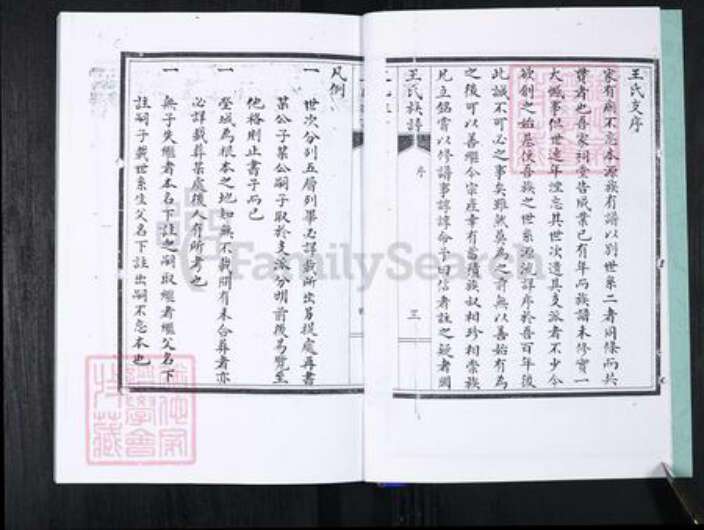 王氏支序
家有廟不忘本源族有譜以別世系二者同條而共
貫者也吾家祠堂告成業已有年而族譜未修實一
大憾事似世遠年湮忘其世次遺其支派者不少今
欲創之始基使吾族之世系源流詳序於吾百年後
此誠不可必之事矣雖然莫為之前無以善始有為
之後可以善繼今宗產幸有蓄積族叔相珍相崇族
兄立銘嘗以修譜事諄諄命予曰信者註之疑者闕
王氏族譜 序 三
凡例
一 世次分列五層列畢必詳載所出另提處再書
某公子某公嗣子取於支派分明前後易覽至
他格則止書子而已
一 塋域為根本之地知無不載間有未合葬者亦
必詳載葬某處後人有所考也
一 無子失繼者本名下註之嗣取繼者繼父名下
註嗣子幾世系生父名下註出嗣不忘本也
FamilySearch